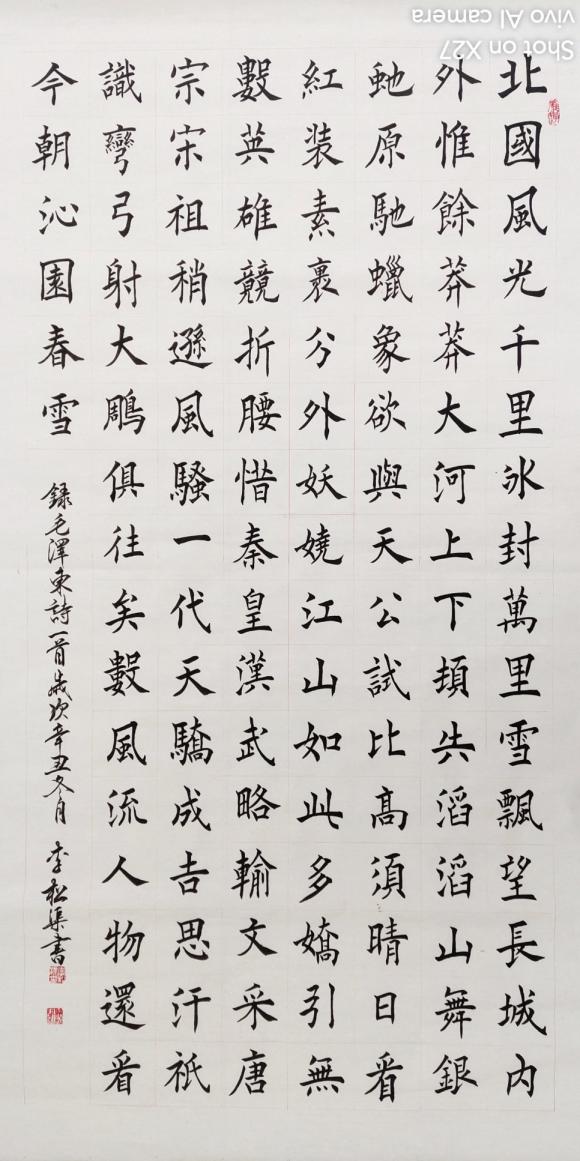 北國風光千里冰封萬里雪飄望長城内
外惟餘莽莽大河上下頓失滔滔山舞銀
虵原馳蠟象欲與天公試比高須晴日看
紅装素裹分外妖嬈江山如此多嬌引無
數英雄競折腰惜秦皇漢武略輸文采唐
宗宋祖稍遜風騷一代天驕成吉思汗祇
識彎弓射大鵰俱往矣數風流人物還看
今朝沁園春雪
録毛澤東詩一首歲次辛丑冬月 李松集書
Shot on X27
vivo AI camera